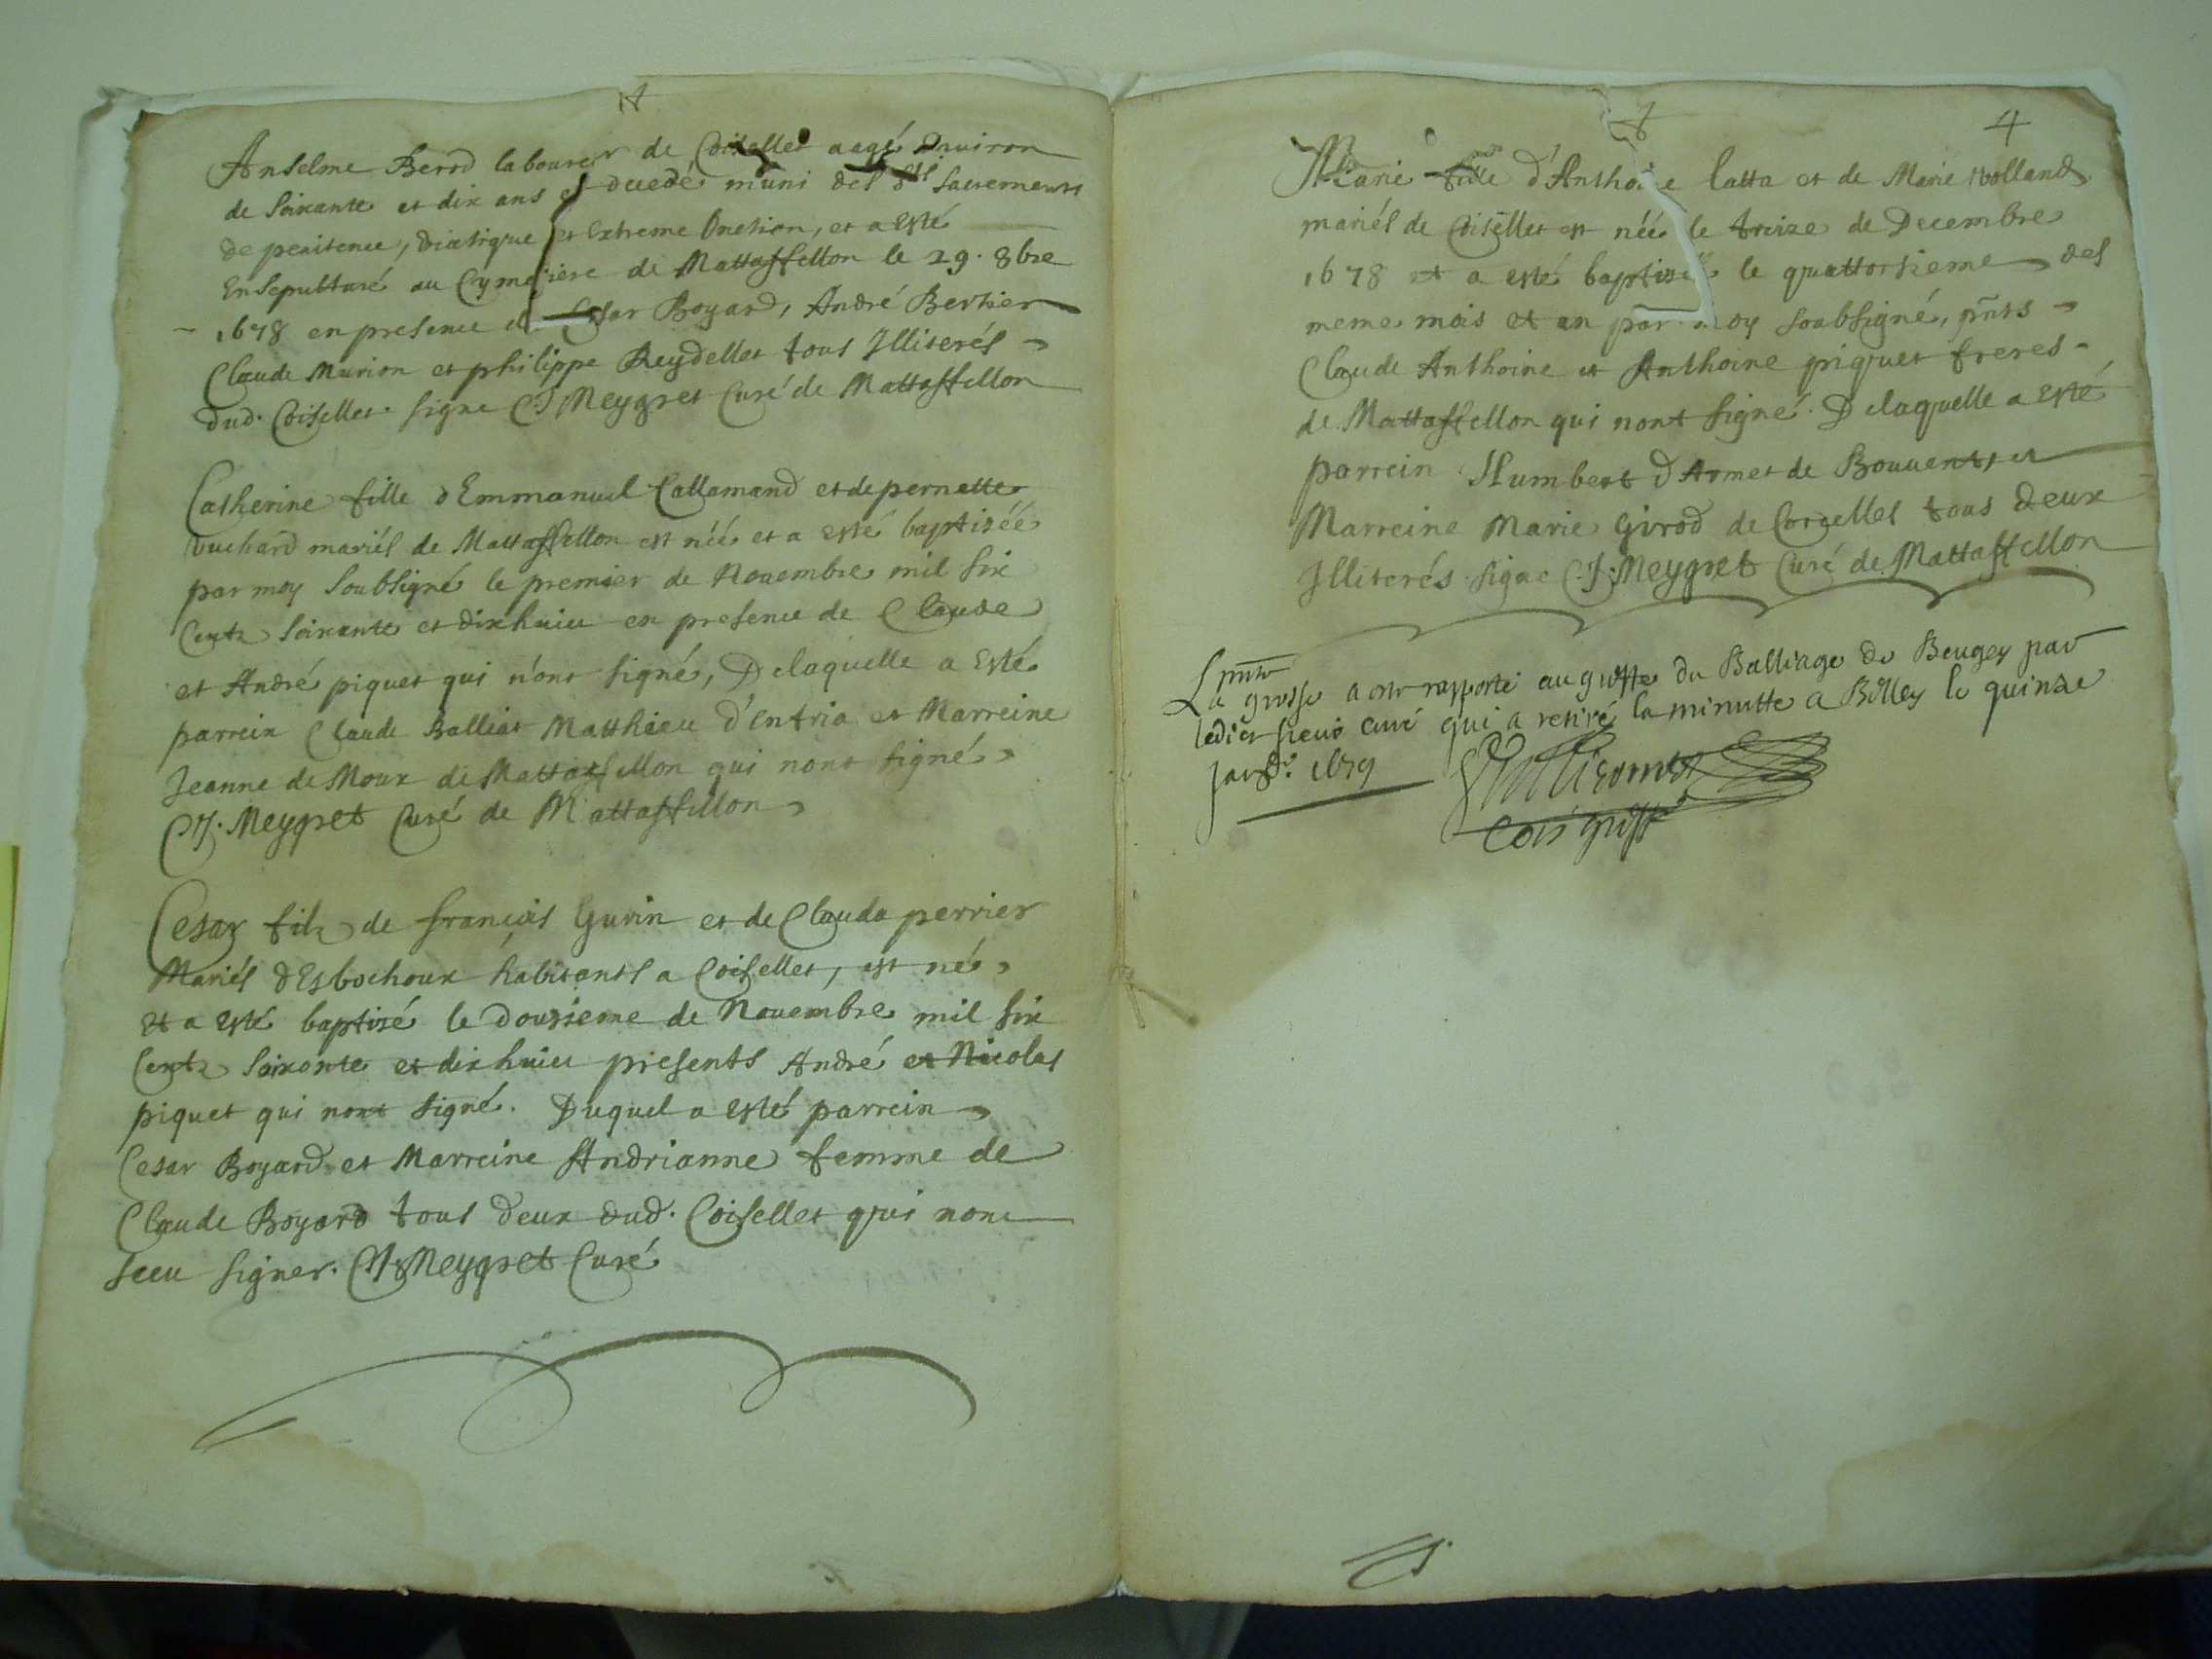 Anselme Berod laboureur de Coiselles aagé Enuiron
de soixante et dix ans est decedé muni des Sts sacrements
de penitence, Viatique et Extreme Onction, et a Esté
Ensepulturé au Cymetiere de Mattaffellon le 29. 8bre
1678 en presence de Cesar Boyard, André Berthier
Claude Murion et philippe Reydellet tous Illiterés
dud. Coisellet. signe C J Meygret Curé de Mattaffellon
Catherine fille d'Emmanuel Callamand et de pernette
Vuchard mariés de Mattaffellon est néé et a esté baptizéé
par moy soubsigné le premier de Nouembre mil six
Centz soixante et dixhuict en presence de Claude
et André piquet qui n'ont signé, De laquelle a Esté
parrein Claude Balliat Matthieu d'Entria et Marreine
Jeanne de Moux de Mattaffellon qui nont signé
C J. Meygret Curé de Mattaffellon
Cesar filz de françois Gurin et de Clauda perrier
Mariés d'Esbochoux habitants a Coisellet, est né
Et a esté baptizé le douzieme de Nouembre mil six
Centz soixante et dixhuict presents André et Nicolas
piquet qui nont signé. Duquel a esté parrein
Cesar Boyard et Marreine Andrianne femme de
Claude Boyard tous deux dud. Coisellet qui nont
sceu signer. C J Meygret Curé
4
Marie fille d'Anthoine Catta et de Marie Volland
mariés de Coisellet est néé le treize de Decembre
1678 et a esté baptizéé le quattorzieme des
meme mois et an par moy soubsigné, pnts
Claude Anthoine et Anthoine piquet freres
de Mattaffellon qui nont signé. De laquelle a esté
parrein Humbert d'Armet de Bouuent, et
Marreine Marie Girod de Corcelles tous deux
Illiterés signe C. J. Meygret Curé de Mattaffellon
La grosse a este rapporte au greffe du Balliage de Beugey par
ledict sieur curé qui a retiré la minutte a Belley le quinze
Janvr. 1679